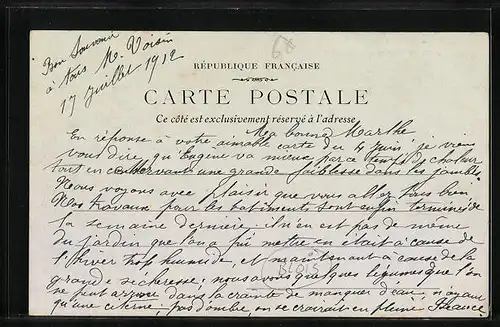 Bon Souvenir
à tous M. Voisin
17 Juillet 1912
RÉPUBLIQUE FRANÇAISE
CARTE POSTALE
Ce côté est exclusivement réservé à l'adresse
Ma bonne Marthe
En réponse à votre aimable carte du 4 juin, je viens
vous dire, qu'Eugène va mieux par ce temps de chaleur
tout en conservant une grande faiblesse dans les jambes.
Nous voyons avec plaisir que vous allez tous bien
Nos travaux pour les batiments sont enfin terminés de
la semaine dernière, il n'en est pas de même
du jardin que l'on a pû mettre en état à cause de
l'hiver trop humide, et maintenant à cause de la
grande sécheresse; nous avons quelques légumes que l'on
ne peut arroser dans la crainte de manquer d'eau, n'ayant
qu'une citerne, pas d'ombre, on se croirait en pleine Beauce
BLOIS